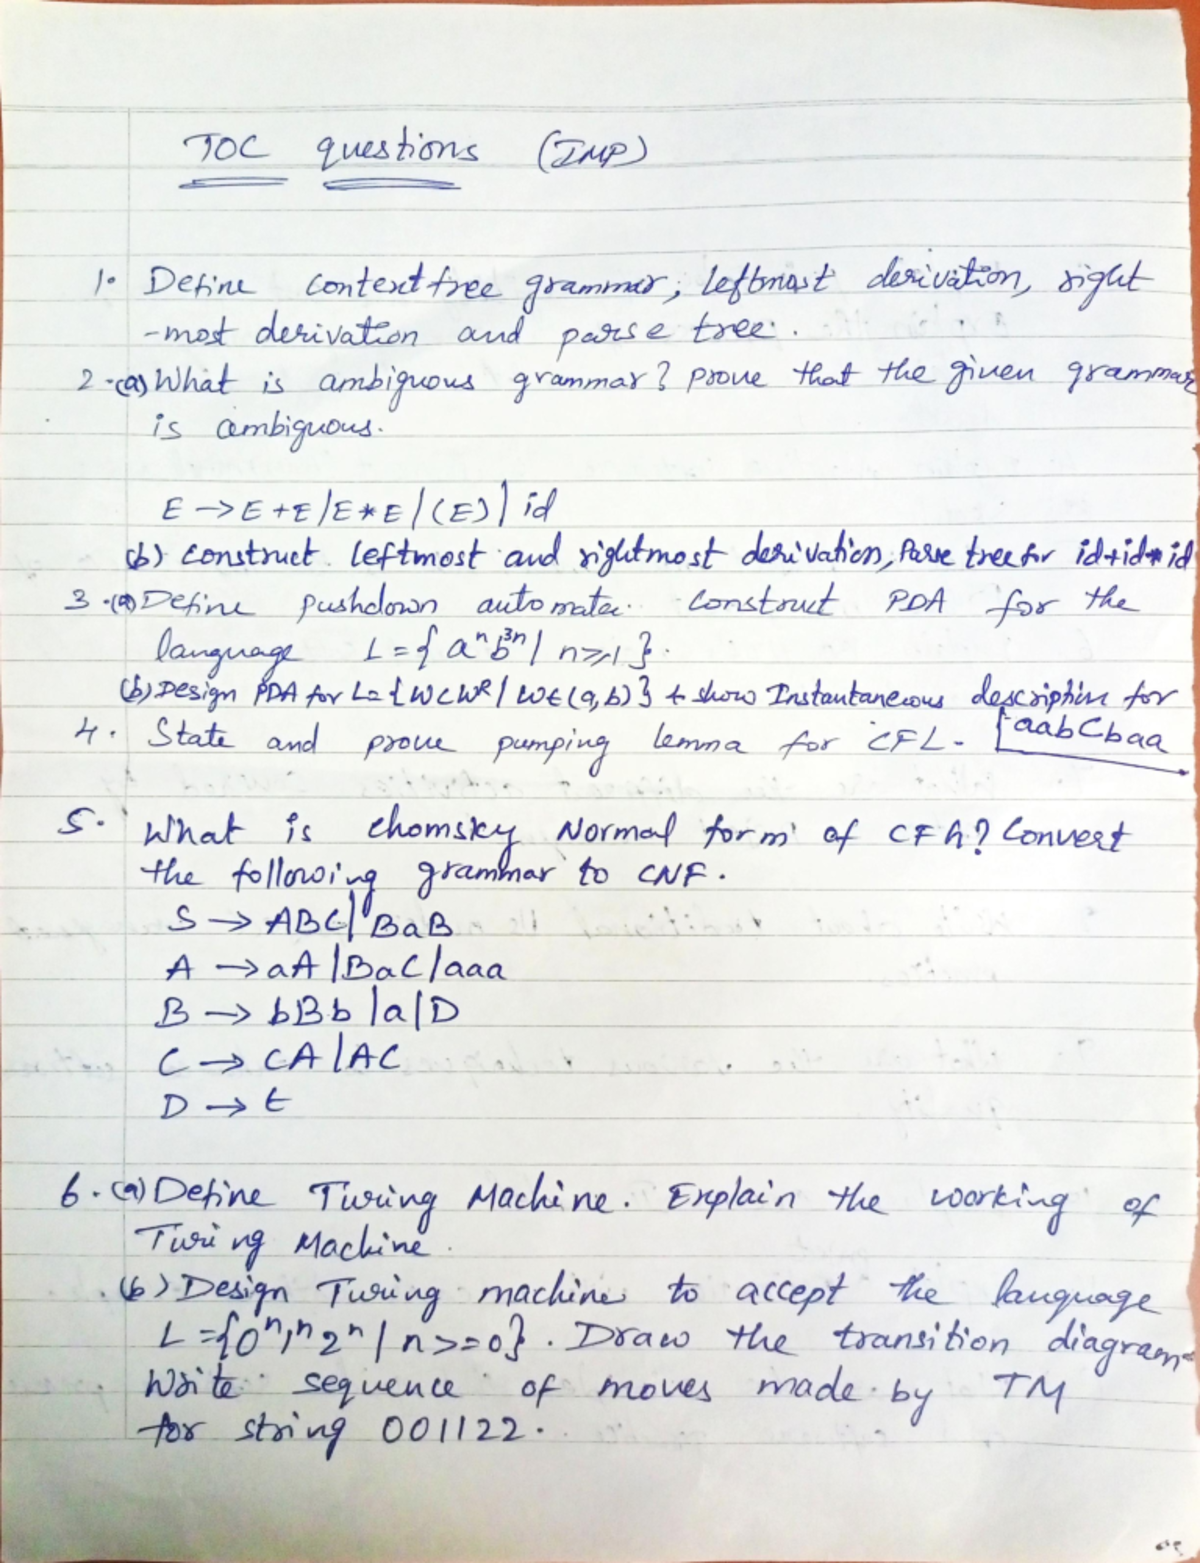 TOC questions (IMP)
1. Define contextfree grammar, leftmost derivation, right
-most derivation and parse tree.
2.(a) What is ambiguous grammar? prove that the given grammar
is ambiguous.
E → E+E/E*E/(E)/id
(b) construct leftmost and rightmost derivation, Parse tree for id+id*id
3.(a) Define pushdown automata. construct PDA for the
language L={aⁿb³ⁿ/ n≥1}.
(b) Design PDA for L={WCWᴿ/ WE(a,b)} + show Instantaneous description for
aabCbaa
4. State and prove pumping lemma for CFL.
5. What is Chomsky Normal form of CFG? Convert
the following grammar to CNF.
S → ABC/BaB
A → aA/BaC/aaa
B → bBb/a/D
C → CA/AC
D → ε
6.(a) Define Turing Machine. Explain the working of
Turing Machine.
(b) Design Turing machine to accept the language
L={0ⁿ1ⁿ2ⁿ/n>=0}. Draw the transition diagram
Write sequence of moves made by TM
for string 001122.